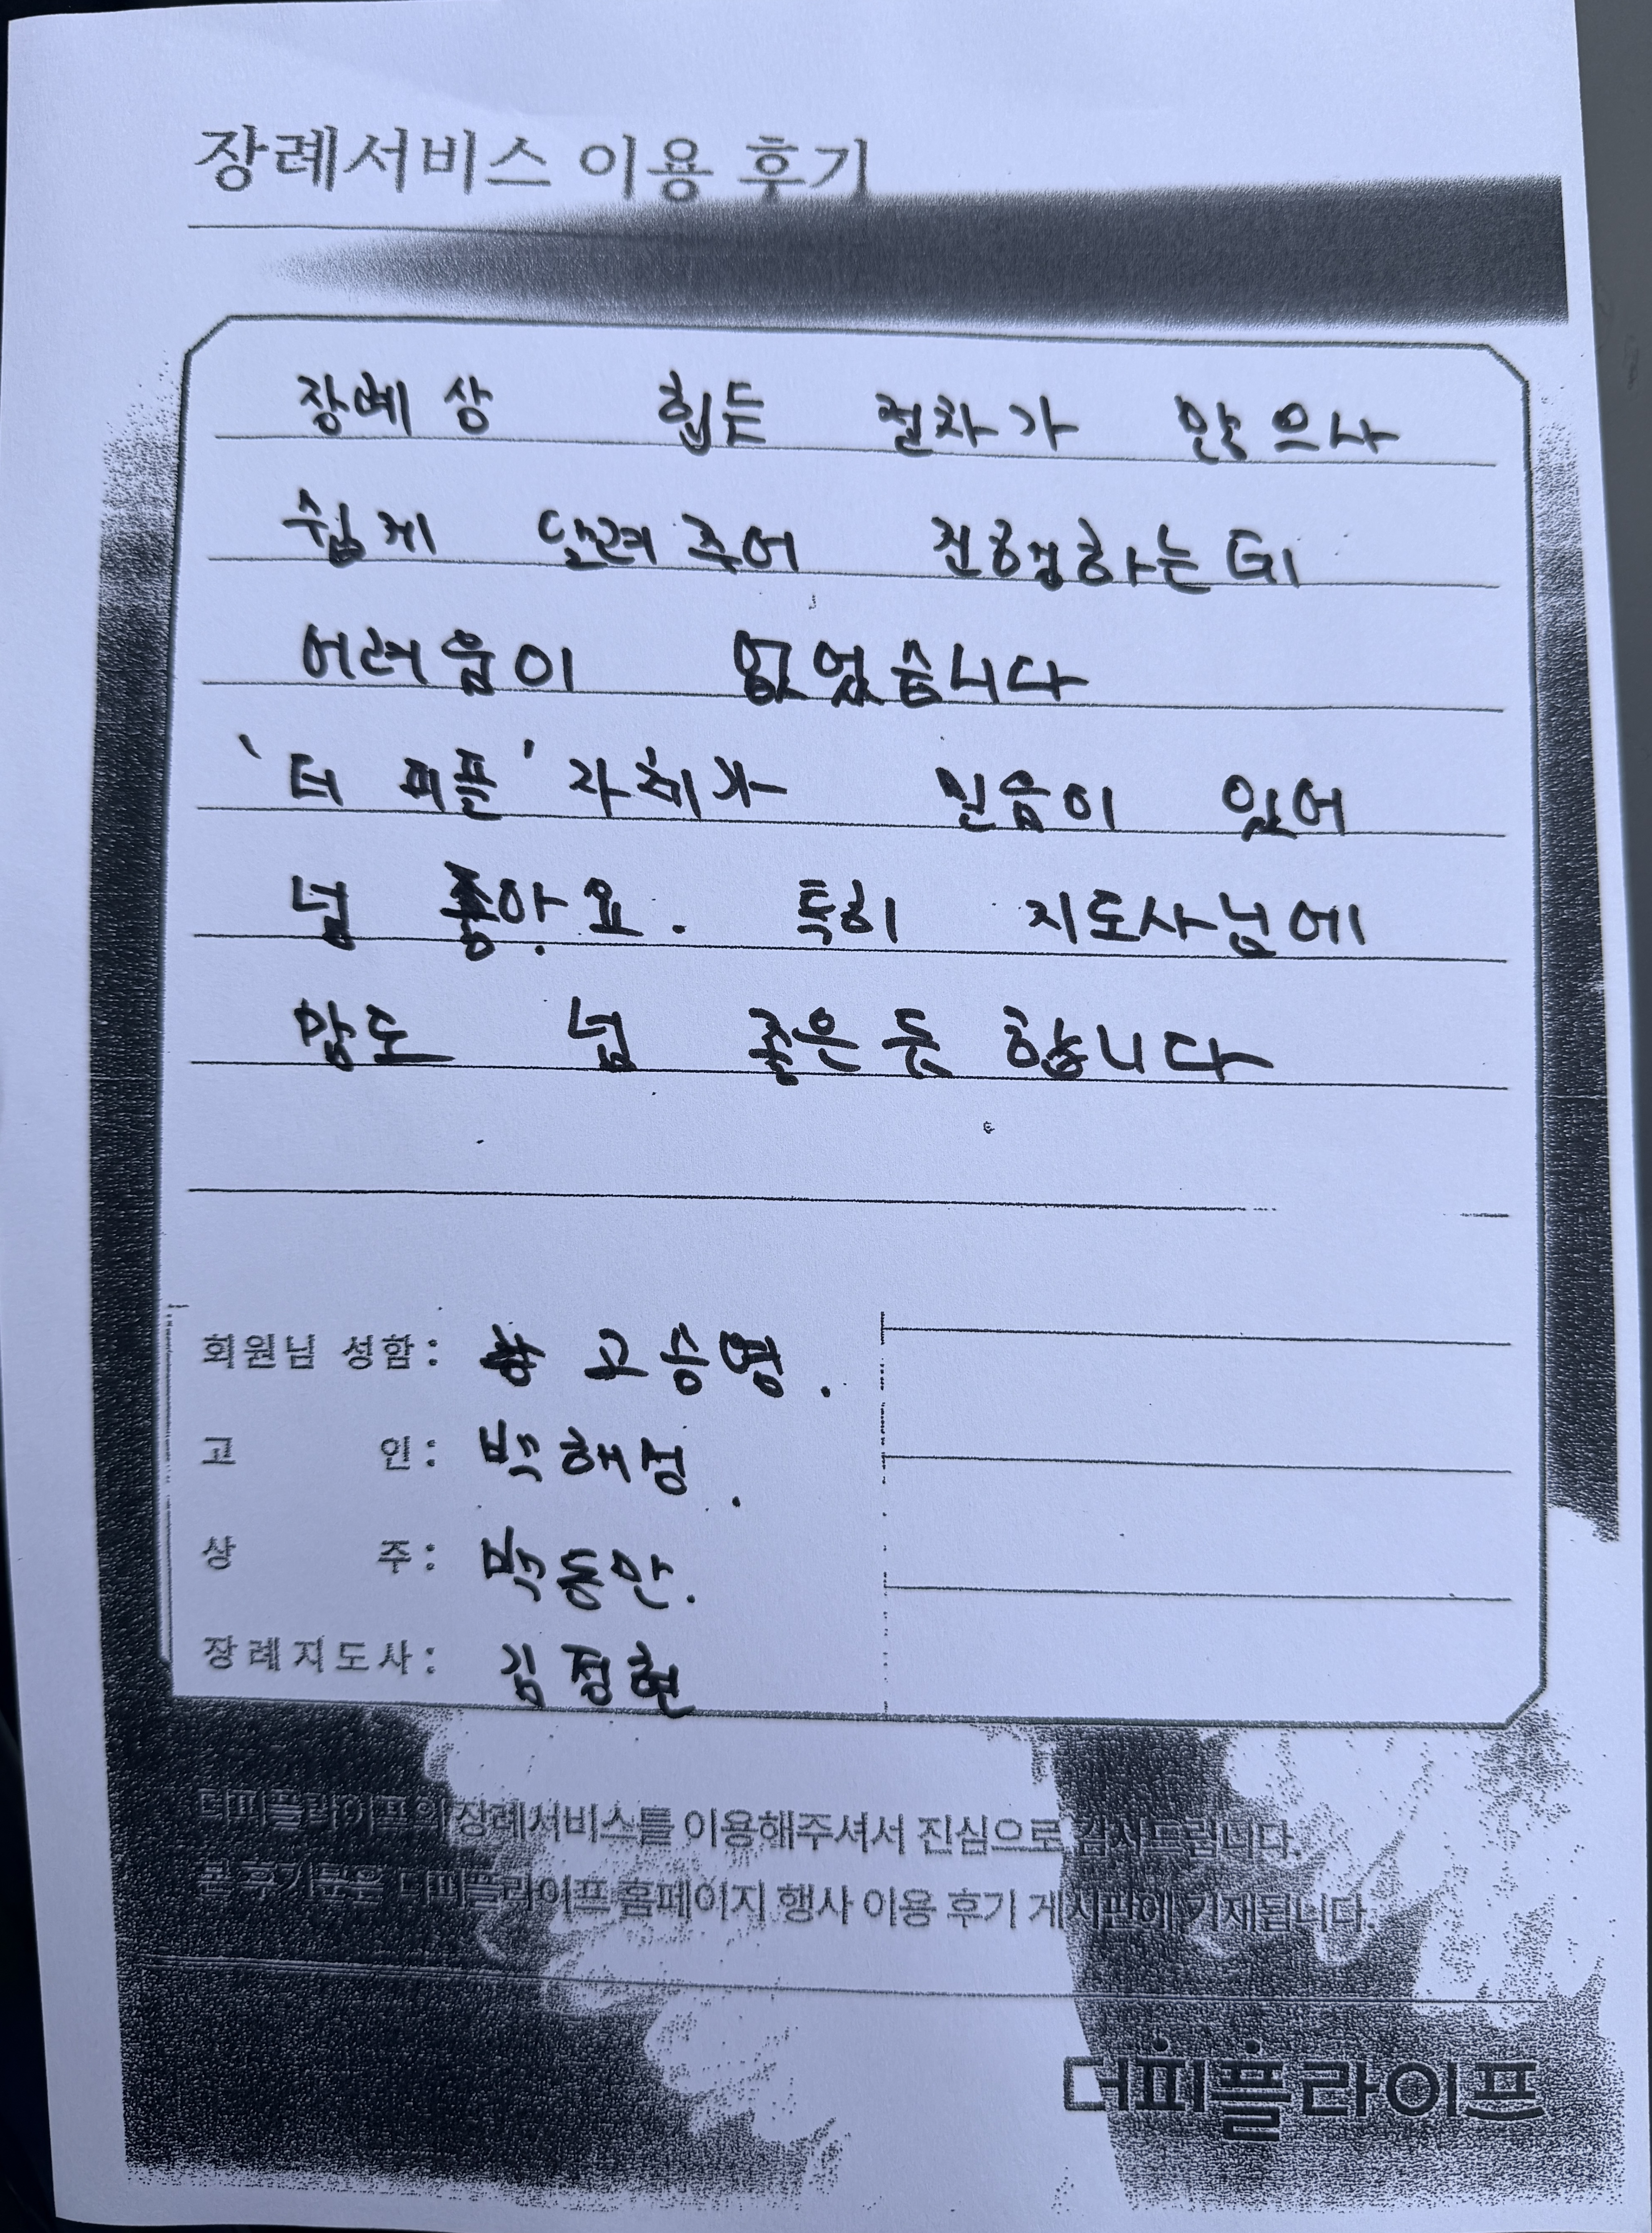 장례서비스 이용 후기
장례 상 힘든 절차가 많으나
쉽게 알려주어 진행하는데
어려움이 없었습니다
'더 피플' 자체가 믿음이 있어
넘 좋아요. 특히 지도사님에
맘도 넘 좋은듯 합니다
회원님 성함: 고승평.
고 인: 박해정.
상 주: 박동안.
장례지도사: 김정현
더피플라이프의 장례서비스를 이용해주셔서 진심으로 감사드립니다.
본 후기문은 더피플라이프 홈페이지 행사 이용 후기 게시판에 기재됩니다.
더피플라이프